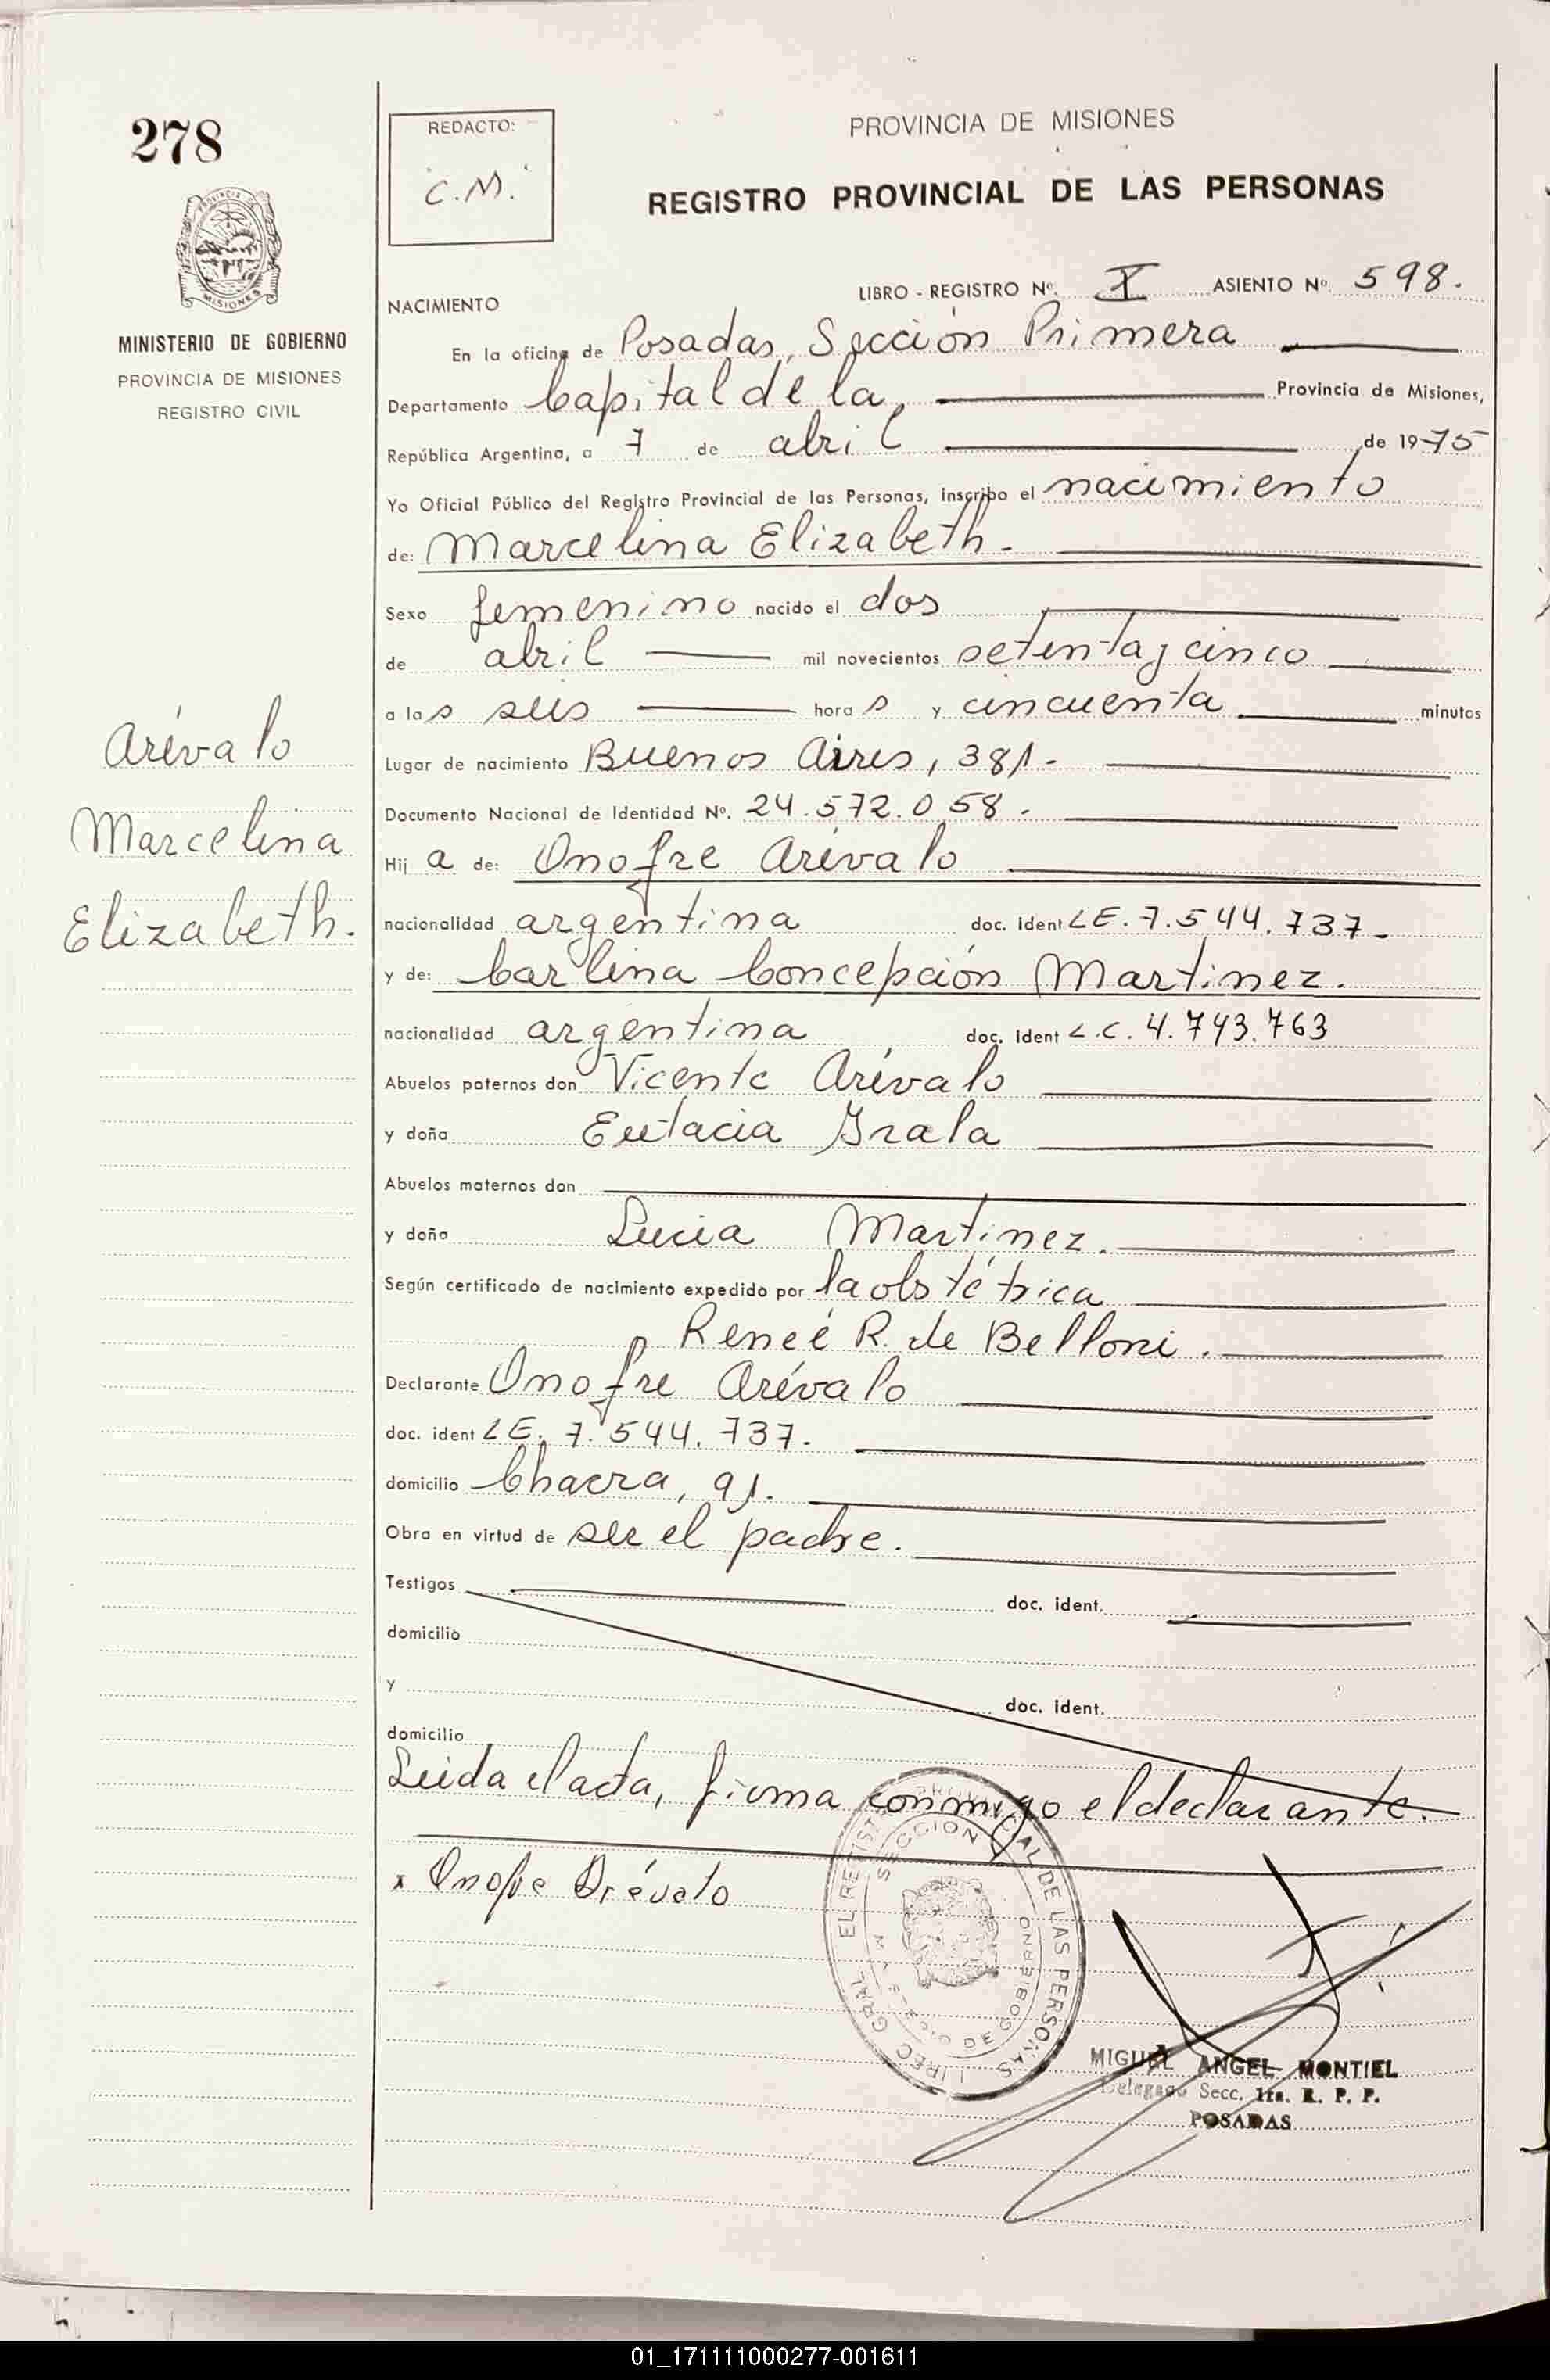 278
REDACTO:
C.M.
PROVINCIA DE MISIONES
REGISTRO PROVINCIAL DE LAS PERSONAS
MISIONES
MINISTERIO DE GOBIERNO
PROVINCIA DE MISIONES
REGISTRO CIVIL
NACIMIENTO
LIBRO - REGISTRO Nº. I ASIENTO Nº. 598.
En la oficina de Posadas, Sección Primera
Departamento Capital de la, Provincia de Misiones,
República Argentina, a 7 de abril de 1975
Yo Oficial Público del Registro Provincial de las Personas, inscribo el nacimiento
de: Marcelina Elizabeth.
Sexo femenino nacido el dos
de abril mil novecientos setenta y cinco
a las seis horas y cincuenta minutos
Lugar de nacimiento Buenos Aires, 381.
Documento Nacional de Identidad Nº. 24.572.058.
Hija de: Onofre Arévalo
nacionalidad argentina doc. ident LE. 7.544.737.
y de: Carlina Concepción Martinez.
nacionalidad argentina doc. ident L.C. 4.743.763
Abuelos paternos don Vicente Arévalo
y doña Eutacia Irala
Abuelos maternos don
y doña Lucia Martinez.
Según certificado de nacimiento expedido por la obstétrica
Reneé R. de Belloni.
Declarante Onofre Arévalo
doc. ident LE. 7.544.737.
domicilio Chacra, 91.
Obra en virtud de ser el padre.
Testigos doc. ident.
domicilio
y doc. ident.
domicilio
Leida el acta, firma conmigo el declarante.
x Onofre Arévalo
Arévalo
Marcelina
Elizabeth.
DE LAS PERSONAS
SECCION
DE GOBIERNO
MIGUEL ANGEL MONTIEL
Delegado Secc. 1ra. R. P. P.
POSADAS
01_171111000277-001611